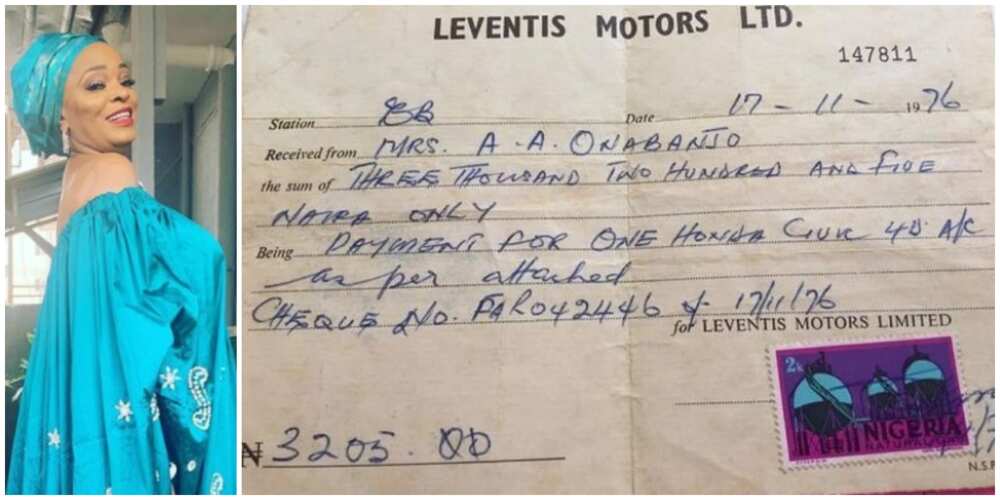 LEVENTIS MOTORS LTD.
147811
Station EB Date 17 - 11 - 1976
Received from MRS. A. A. ONABANJO
the sum of THREE THOUSAND TWO HUNDRED AND FIVE
NAIRA ONLY
Being PAYMENT FOR ONE HONDA CIVIC 4D A/C
as per attached
CHEQUE NO. PAR042446 of 17/11/76
for LEVENTIS MOTORS LIMITED
2k
NIGERIA
NATURAL GAS
₦ 3205.00